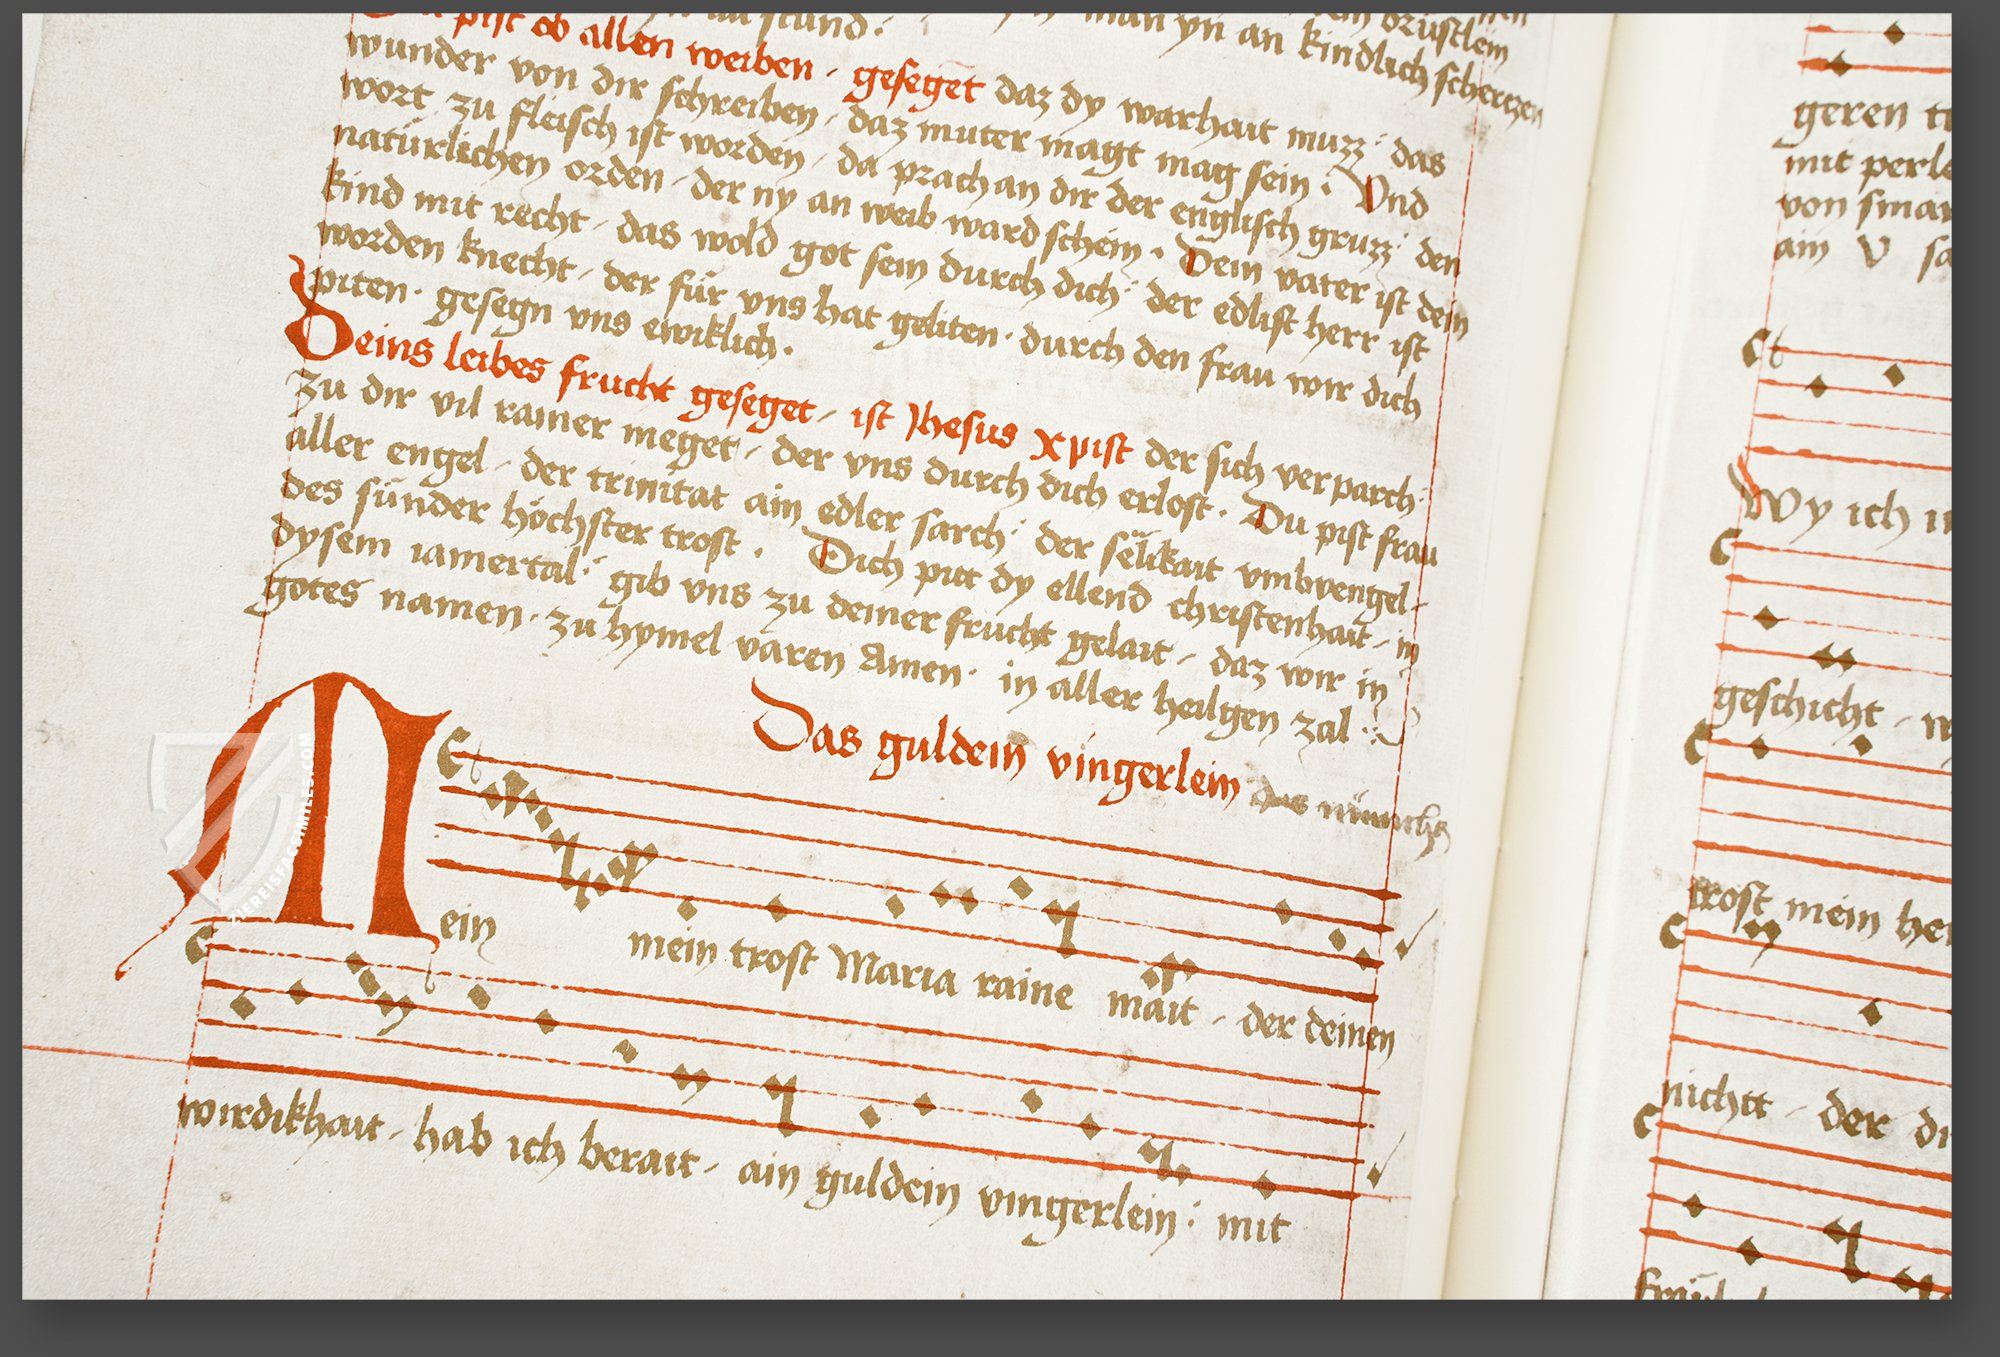 stund. man yn an kindlich schertzen
pist ob allen weiben, geseget daz dy warhait muzz: das
wunder von dir schreiben, daz muter magt mag sein. Vnd
wort zu fleisch ist worden, da prach an dir der englisch gruzz: den
natürlichen orden, der ny an weib ward schein. Dein vater ist dein
kind mit recht, das wold got sein durch dich: der edlist herr ist
worden knecht, der für vns hat geliten. durch den frau wir dich
piten. gesegn vns ewiklich.
Deins leibes frucht geseget, ist Jhesus Xpist der sich verparch:
zu dir vil rainer meget, der vns durch dich erlost. Du pist frau
aller engel, der trinitat ain edler sarch: der sëlikait vmbvengel,
des sünder höchster trost. Dich pitt dy ellend christenhait, in
dysem iamertal: gib vns zu deiner frucht gelait, daz wir in
gotes namen. zu hymel varen Amen. in aller heiligen zal
Das guldein vingerlein das münchs
Mein mein trost Maria raine mäit, der deinen
wirdikhait, hab ich berait, ain guldein vingerlein: mit
geren
mit perle
von smar
ain V
Wy ich
geschicht,
trost mein
nichtt, der